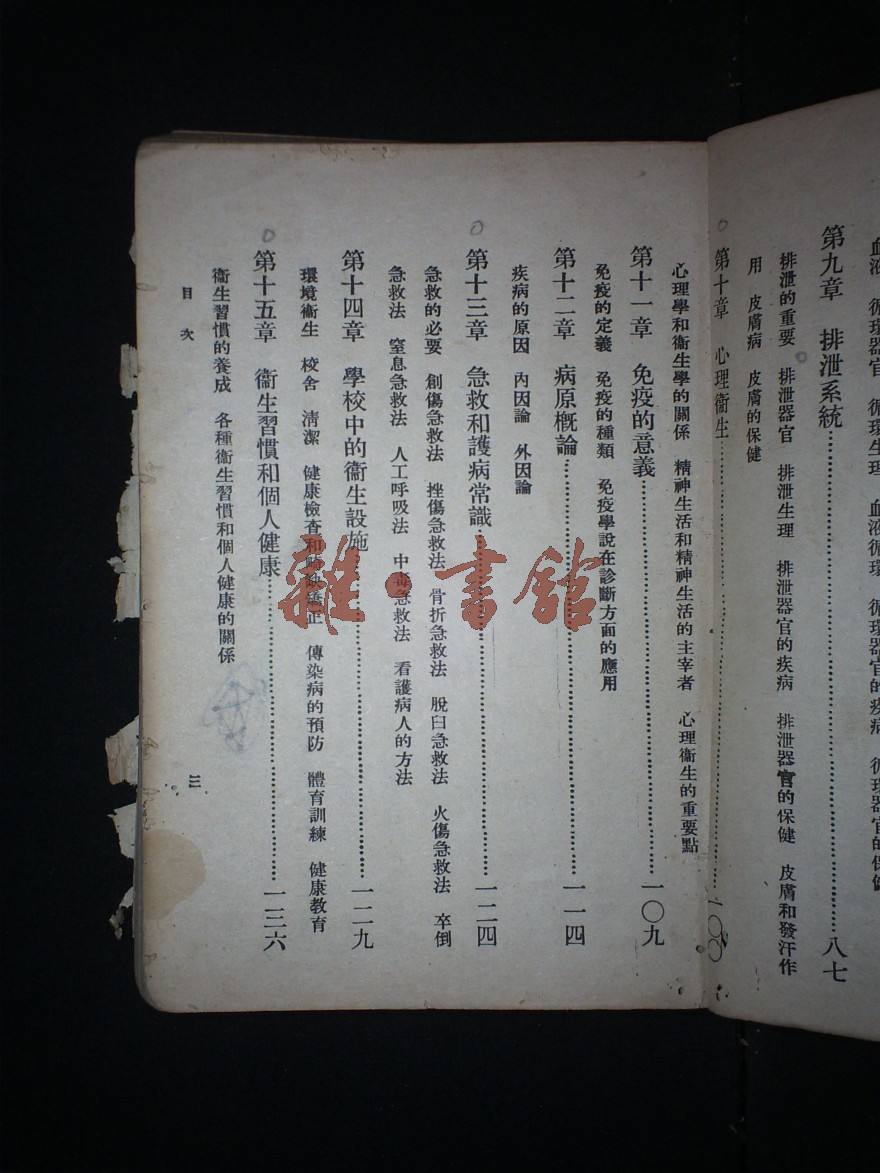 血液 循環器官 循環生理 血液循環 循環器官的疾病 循環器官的保健
第九章 排泄系統……八七
排泄的重要 排泄器官 排泄生理 排泄器官的疾病 排泄器官的保健 皮膚和發汗作
用 皮膚病 皮膚的保健
第十章 心理衞生……一〇〇
心理學和衞生學的關係 精神生活和精神生活的主宰者 心理衞生的重要點
第十一章 免疫的意義……一〇九
免疫的定義 免疫的種類 免疫學說在診斷方面的應用
第十二章 病原概論……一一四
疾病的原因 內因論 外因論
第十三章 急救和護病常識……一二四
急救的必要 創傷急救法 挫傷急救法 骨折急救法 脫臼急救法 火傷急救法 卒倒
急救法 窒息急救法 人工呼吸法 中毒急救法 看護病人的方法
第十四章 學校中的衞生設施……一二九
環境衞生 校舍 清潔 健康檢查和缺矯正 傳染病的預防 體育訓練 健康教育
第十五章 衞生習慣和個人健康……一三六
衞生習慣的養成 各種衞生習慣和個人健康的關係
目次
三
雜·書館